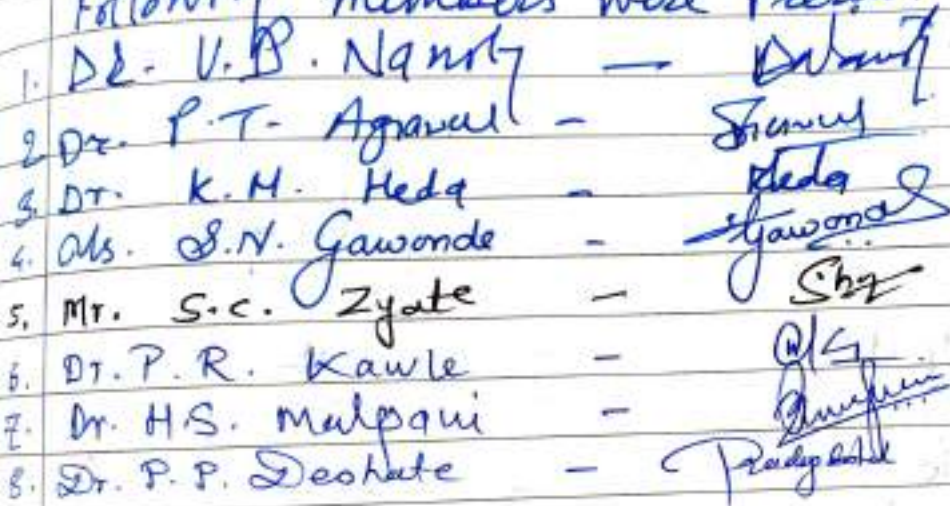 Following members were Present
1. Dr. V.B. Nanoty —
2. Dr. P.T. Agrawal -
3. Dr. K.M. Heda - Heda
4. Ms. S.N. Gawonde - Gawonde
5. Mr. S.C. Zyate -
6. Dr. P.R. Kawle -
7. Dr. H.S. Malpani -
8. Dr. P.P. Deohate -